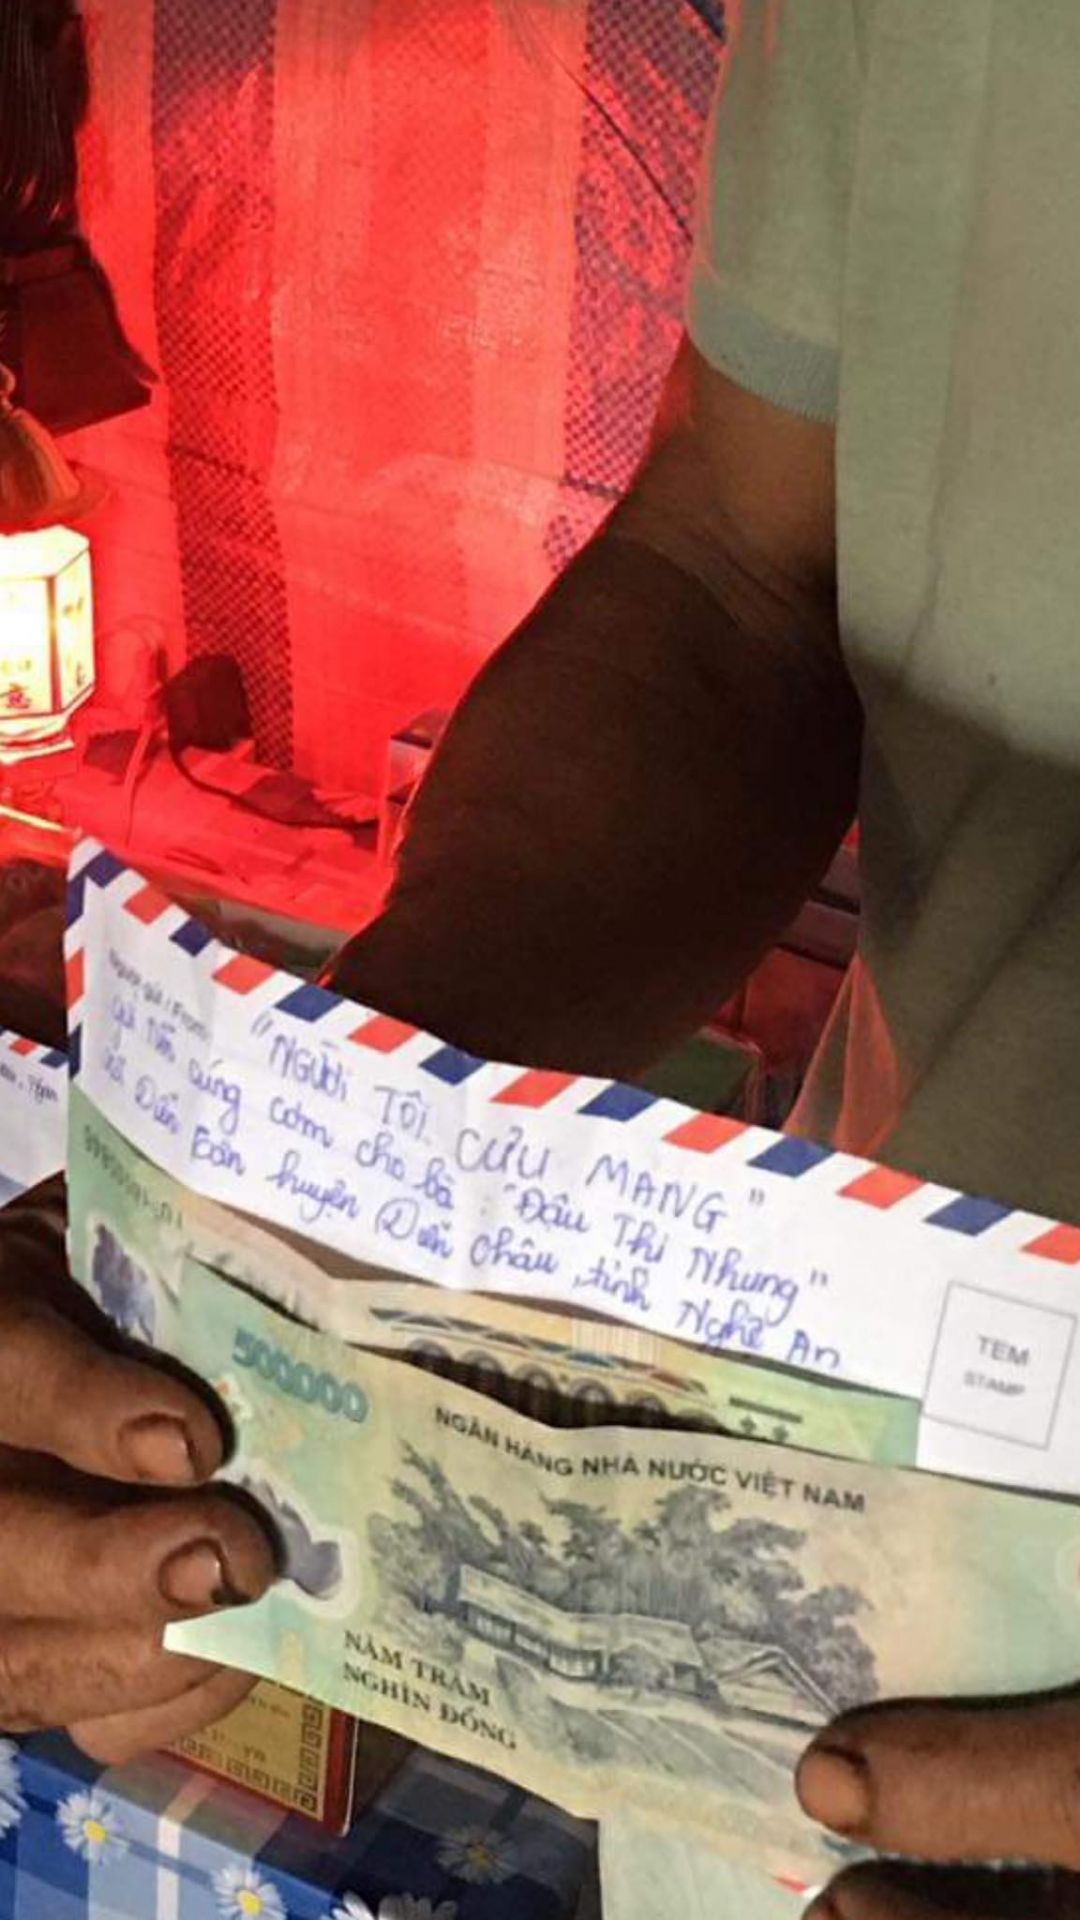 Người gửi / From
"NGƯỜI TÔI CƯU MANG"
gửi tiền cúng cơm cho bà: "Đậu Thị Nhung"
xã Diễn Đoài huyện Diễn Châu, tỉnh Nghệ An
TEM
STAMP
500000
NGÂN HÀNG NHÀ NƯỚC VIỆT NAM
NĂM TRĂM
NGHÌN ĐỒNG